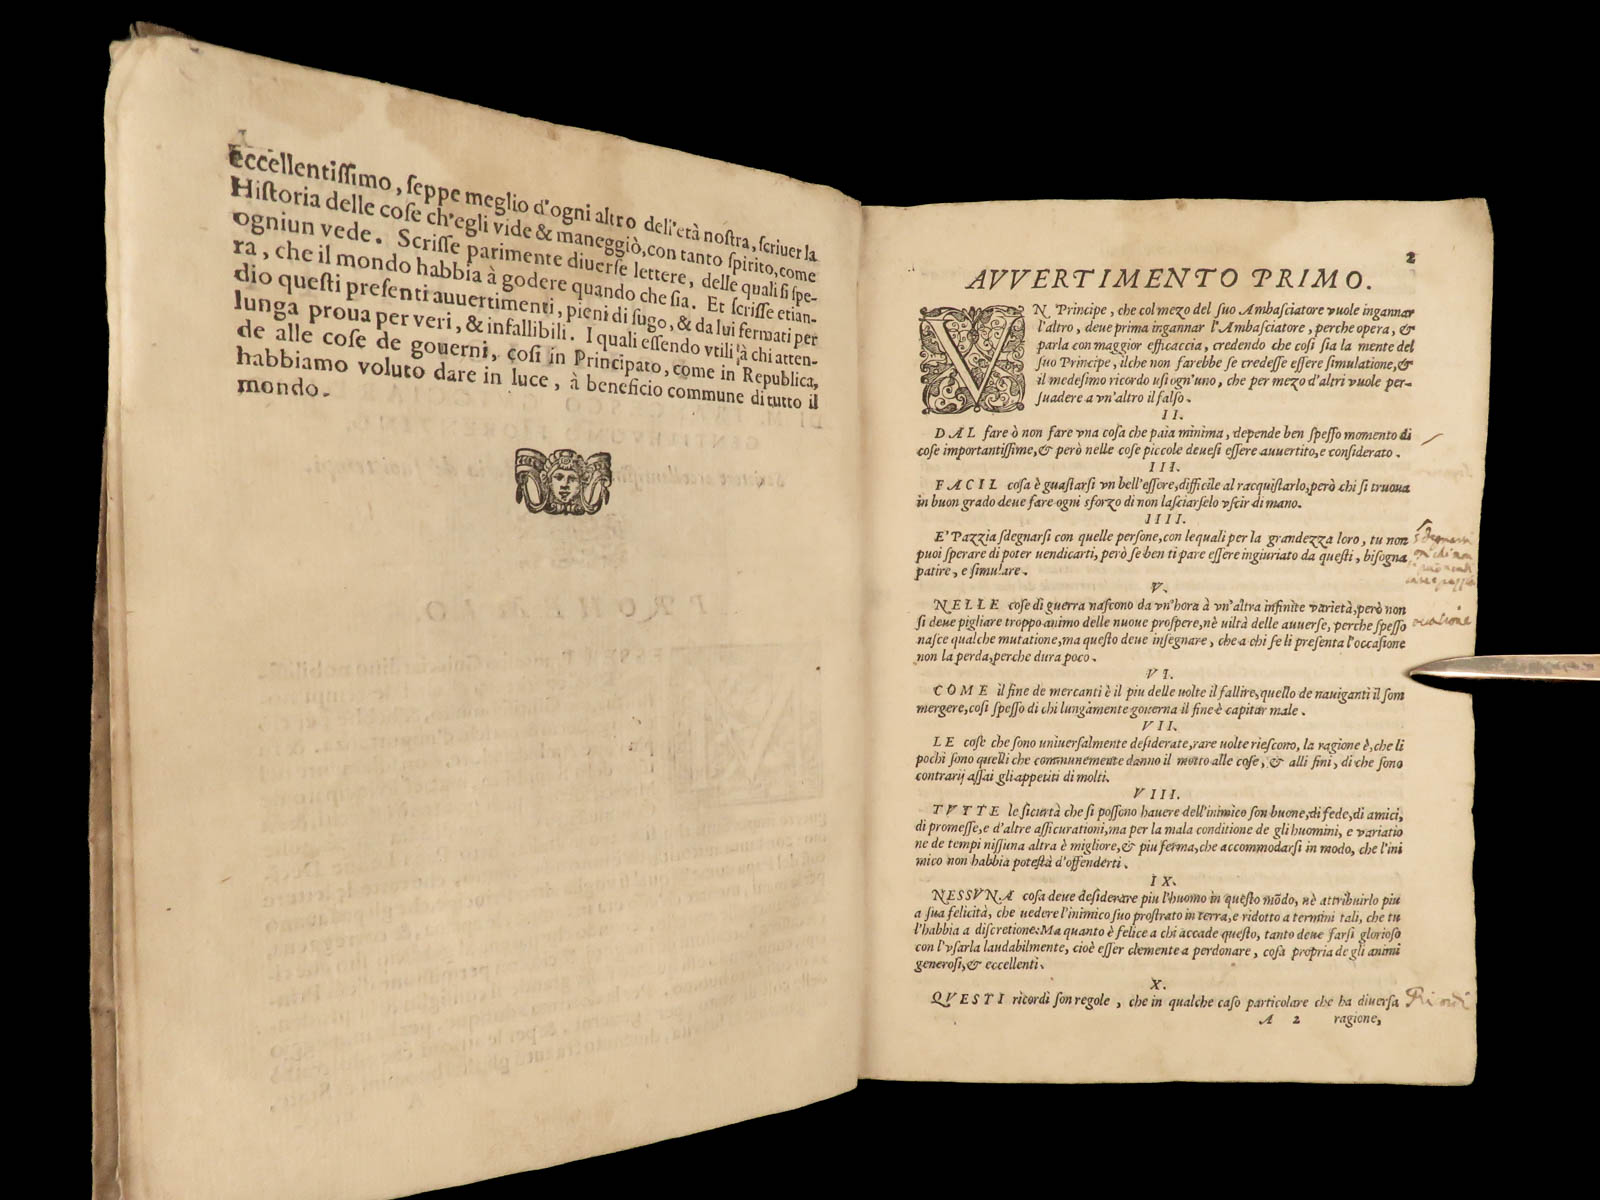 eccellentissimo, seppe meglio d'ogni altro dell'età nostra, scriuer la
Historia delle cose ch'egli vide & maneggiò, con tanto spirito, come
ogniun vede. Scrisse parimente diuerse lettere, delle quali si spe-
ra, che il mondo habbia à godere quando che sia. Et scrisse etian-
dio questi presenti auuertimenti, pieni di sugo, & da lui fermati per
lunga proua per veri, & infallibili. I quali essendo vtili à chi atten-
de alle cose de gouerni, così in Principato, come in Republica,
habbiamo voluto dare in luce, à beneficio commune di tutto il
mondo.
2
AVVERTIMENTO PRIMO.
VN Principe, che col mezo del suo Ambasciatore vuole ingannar
l'altro, deue prima ingannar l'Ambasciatore, perche opera, &
parla con maggior efficaccia, credendo che così sia la mente del
suo Principe, ilche non farebbe se credesse essere simulatione, &
il medesimo ricordo usi ogn'uno, che per mezo d'altri vuole per-
suadere a vn'altro il falso.
II.
DAL fare ò non fare vna cosa che paia minima, depende ben spesso momento di
cose importantissime, & però nelle cose piccole deuesi essere auuertito, e considerato.
III.
FACIL cosa è guastarsi vn bell'essere, difficile al racquistarlo, però chi si truoua
in buon grado deue fare ogni sforzo di non lasciarselo vscir di mano.
IIII.
E' Pazzia sdegnarsi con quelle persone, con lequali per la grandezza loro, tu non
puoi sperare di poter uendicarti, però se ben ti pare essere ingiuriato da questi, bisogna
patire, e simulare.
V.
NELLE cose di guerra nascono da vn'hora à vn'altra infinite varietà, però non
si deue pigliare troppo animo delle nuoue prospere, nè uiltà delle auuerse, perche spesso
nasce qualche mutatione, ma questo deue insegnare, che a chi se li presenta l'occasione
non la perda, perche dura poco.
occasione
VI.
COME il fine de mercanti è il piu delle uolte il fallire, quello de nauiganti il som
mergere, così spesso di chi lungamente gouerna il fine è capitar male.
VII.
LE cose che sono uniuersalmente desiderate, rare uolte riescono, la ragione è, che li
pochi sono quelli che communemente danno il motto alle cose, & alli fini, di che sono
contrarij assai gli appetiti di molti.
VIII.
TVTTE le sicurtà che si possono hauere dell'inimico son buone, di fede, di amici,
di promesse, e d'altre assicurationi, ma per la mala conditione de gli huomini, e variatio
ne de tempi nissuna altra è migliore, & piu ferma, che accommodarsi in modo, che l'ini
mico non habbia potestà d'offenderti.
IX.
NESSVNA cosa deue desiderare piu l'huomo in questo mōdo, nè attribuirlo piu
a sua felicità, che uedere l'inimico suo prostrato in terra, e ridotto a termini tali, che tu
l'habbia a discretione: Ma quanto è felice a chi accade questo, tanto deue farsi glorioso
con l'vsarla laudabilmente, cioè esser clemente a perdonare, cosa propria de gli animi
generosi, & eccellenti.
X.
QVESTI ricordi son regole, che in qualche caso particolare che ha diuersa
Ricordi
A 2 ragione,